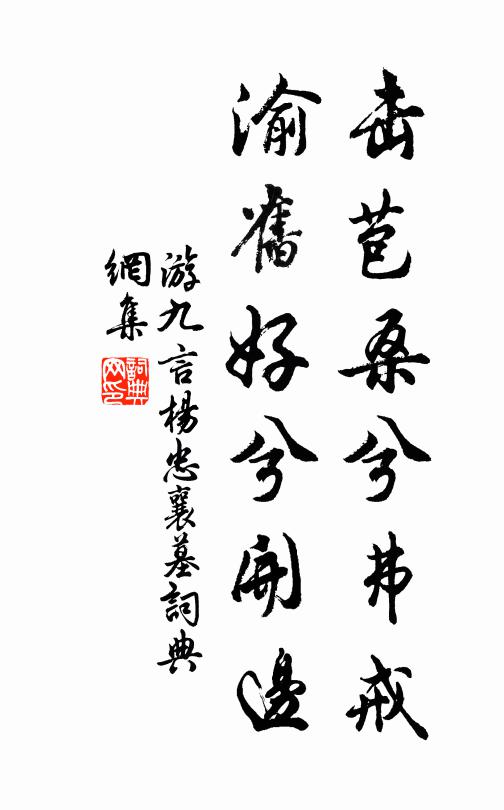 击苞桑兮弗戒
渝舊好兮開邊
游九言楊忠襄墓詞典
網集
詞典
网印